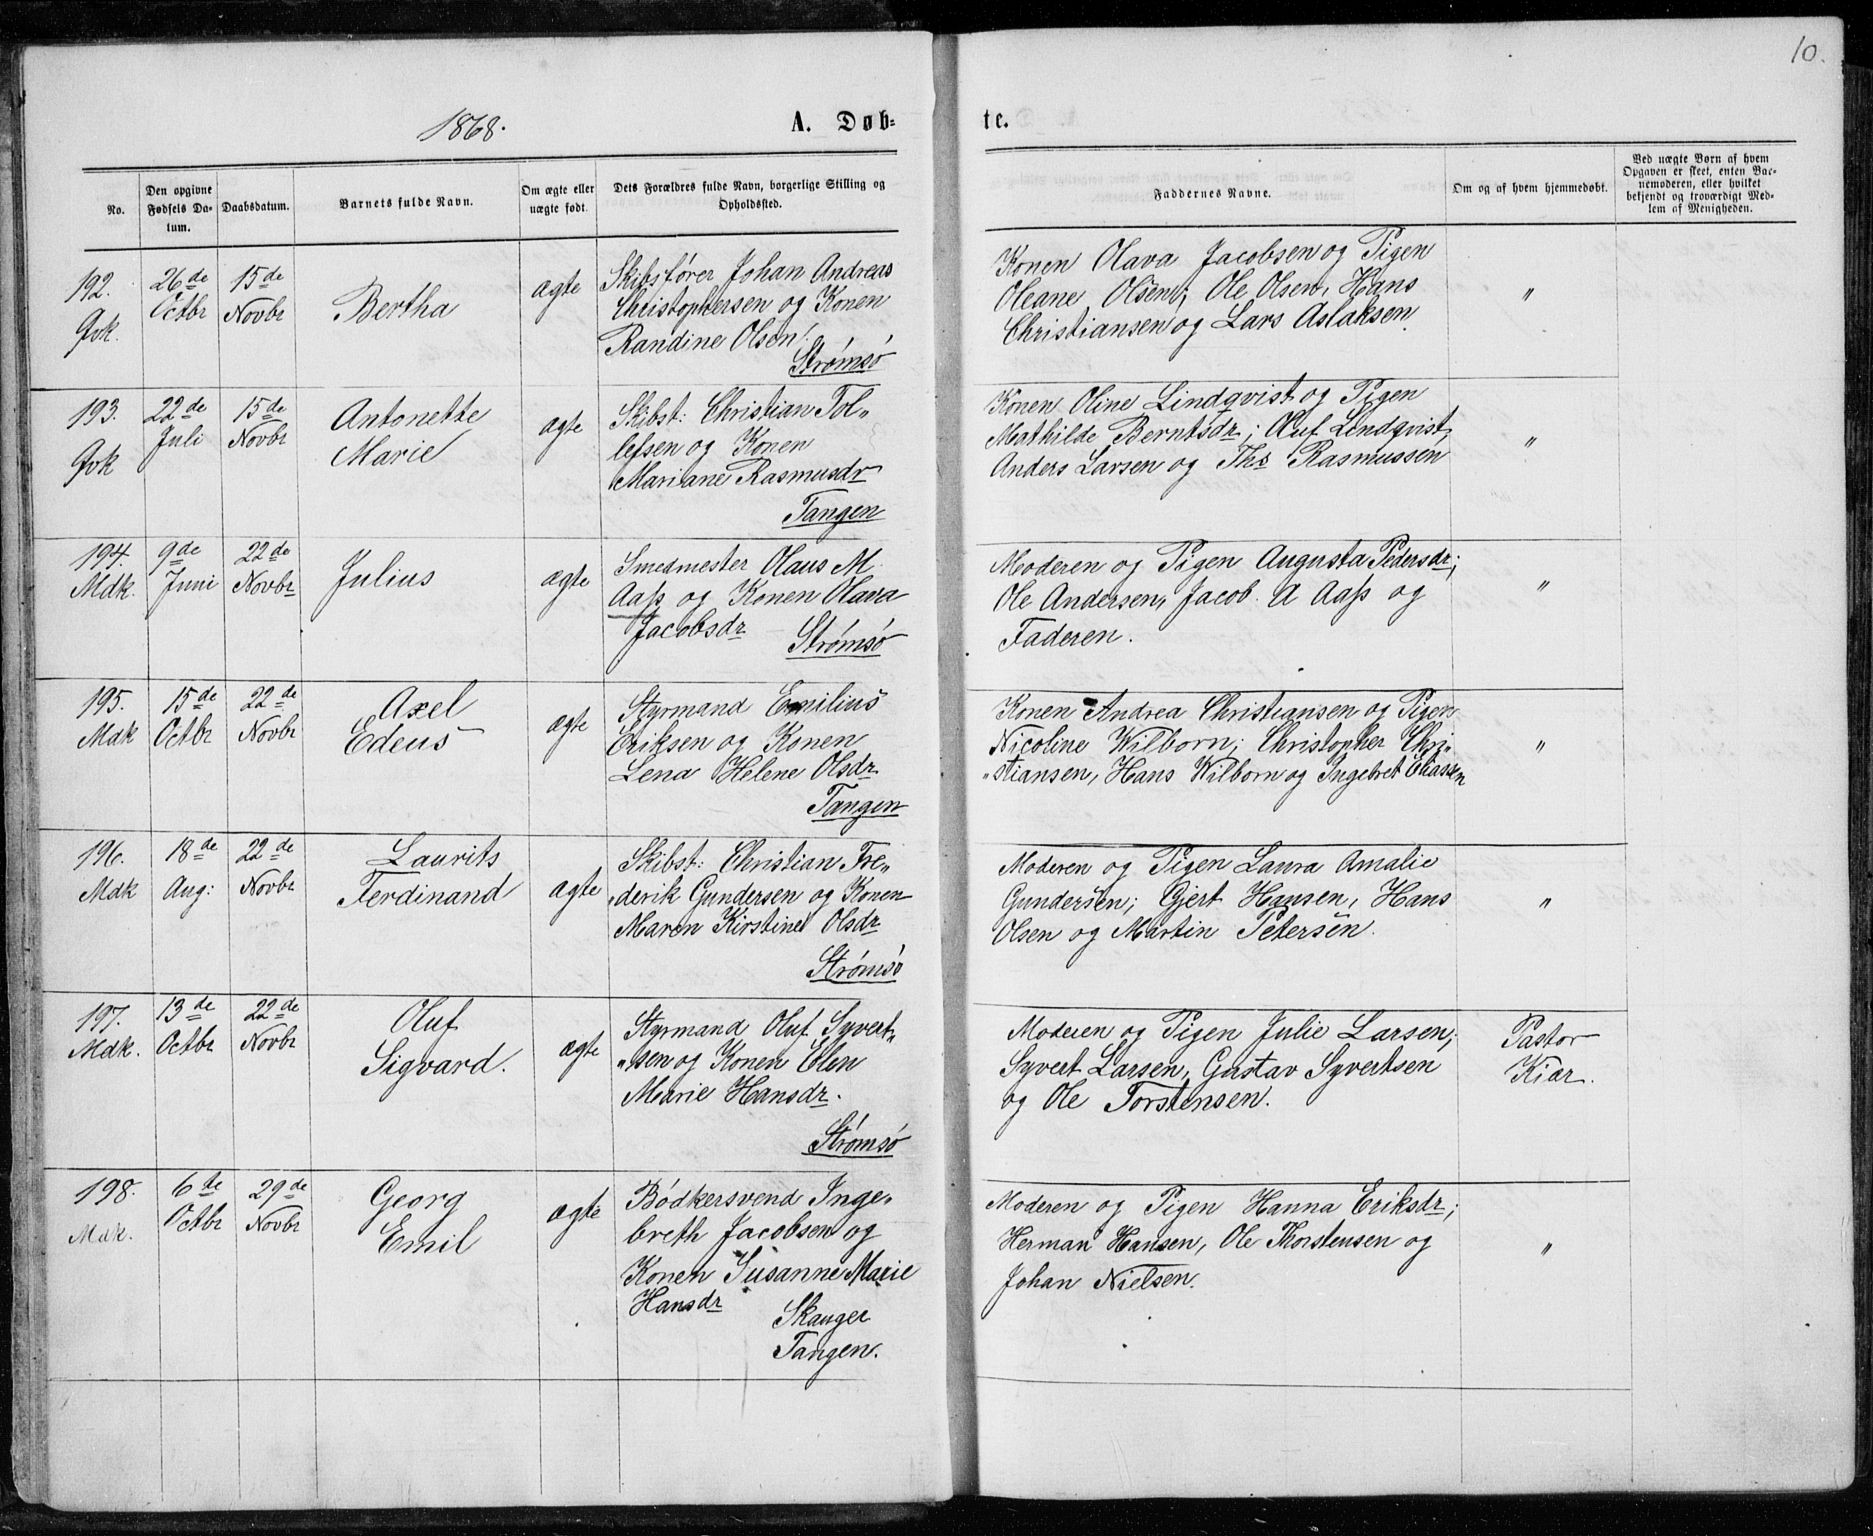 10.
1868.
A. Døb-
te.
No.
Den opgivne
Fødsels Da-
tum.
Daabsdatum.
Barnets fulde Navn.
Om ægte eller
uægte født.
Dets Forældres fulde Navn, borgerlige Stilling og
Opholdssted.
Faddernes Navne.
Om og af hvem hjemmedøbt.
Ved uægte Børn af hvem
Opgaven er skeet, enten Bar-
nemoderen, eller hvilket
bekjendt og troværdigt Med-
lem af Menigheden.
192.
Qvk.
26de
Octbr
15de
Novbr
Bertha
ægte
Skibsfører Johan Andreas
Christophersen og Konen
Randine Olsen.
Strømsø
Konen Olava Jacobsen og Pigen
Oleane Olsen; Ole Olsen, Hans
Christiansen og Lars Aslaksen.
"
193.
Qvk
22de
Juli
15de
Novbr
Antonette
Marie
ægte
Skibst: Christian Tol-
lefsen og Konen
Mariane Rasmusdr
Tangen
Konen Oline Lindqvist og Pigen
Mathilde Berntsdr; Oluf Lindqvist,
Anders Larsen og Ths Rasmussen
"
194.
Mdk.
9de
Juni
22de
Novbr
Julius
ægte
Smedmester Olaus M
Aass og Konen Olava
Jacobsdr
Strømsø
Moderen og Pigen Augusta Pedersdr;
Ole Andersen, Jacob. A Aass og
Faderen.
"
195.
Mdk
15de
Octbr
22de
Novbr
Axel
Edeus
ægte
Styrmand Emilius
Eriksen og Konen
Lena Helene Olsdr
Tangen
Konen Andrea Christiansen og Pigen
Nicoline Wilborn; Christopher Chri-
"stiansen, Hans Wilborn og Ingebret Eliassen
"
196.
Mdk
18de
Aug:
22de
Novbr
Laurits
Ferdinand
ægte
Skibst: Christian Fre-
"derik Gundersen og Konen
Maren Kirstine Olsdr
Strømsø
Moderen og Pigen Laura Amalie
Gundersen; Gjert Hansen, Hans
Olsen og Martin Petersen.
"
197.
Mdk.
13de
Octbr
22de
Novbr
Oluf
Sigvard.
ægte
Styrmand Oluf Syvert-
"sen og Konen Elen
Marie Hansdr.
Strømsø
Moderen og Pigen Julie Larsen;
Syvert Larsen, Gustav Syvertsen
og Ole Torstensen.
Pastor
Kiær.
198.
Mdk.
6de
Octbr
29de
Novbr
Georg
Emil
ægte
Bødkersvend Inge-
breth Jacobsen og
Konen Susanne Marie
Hansdr
Skauger
Tangen.
Moderen og Pigen Hanna Eriksdr;
Herman Hansen, Ole Thorstensen og
Johan Nielsen.
"